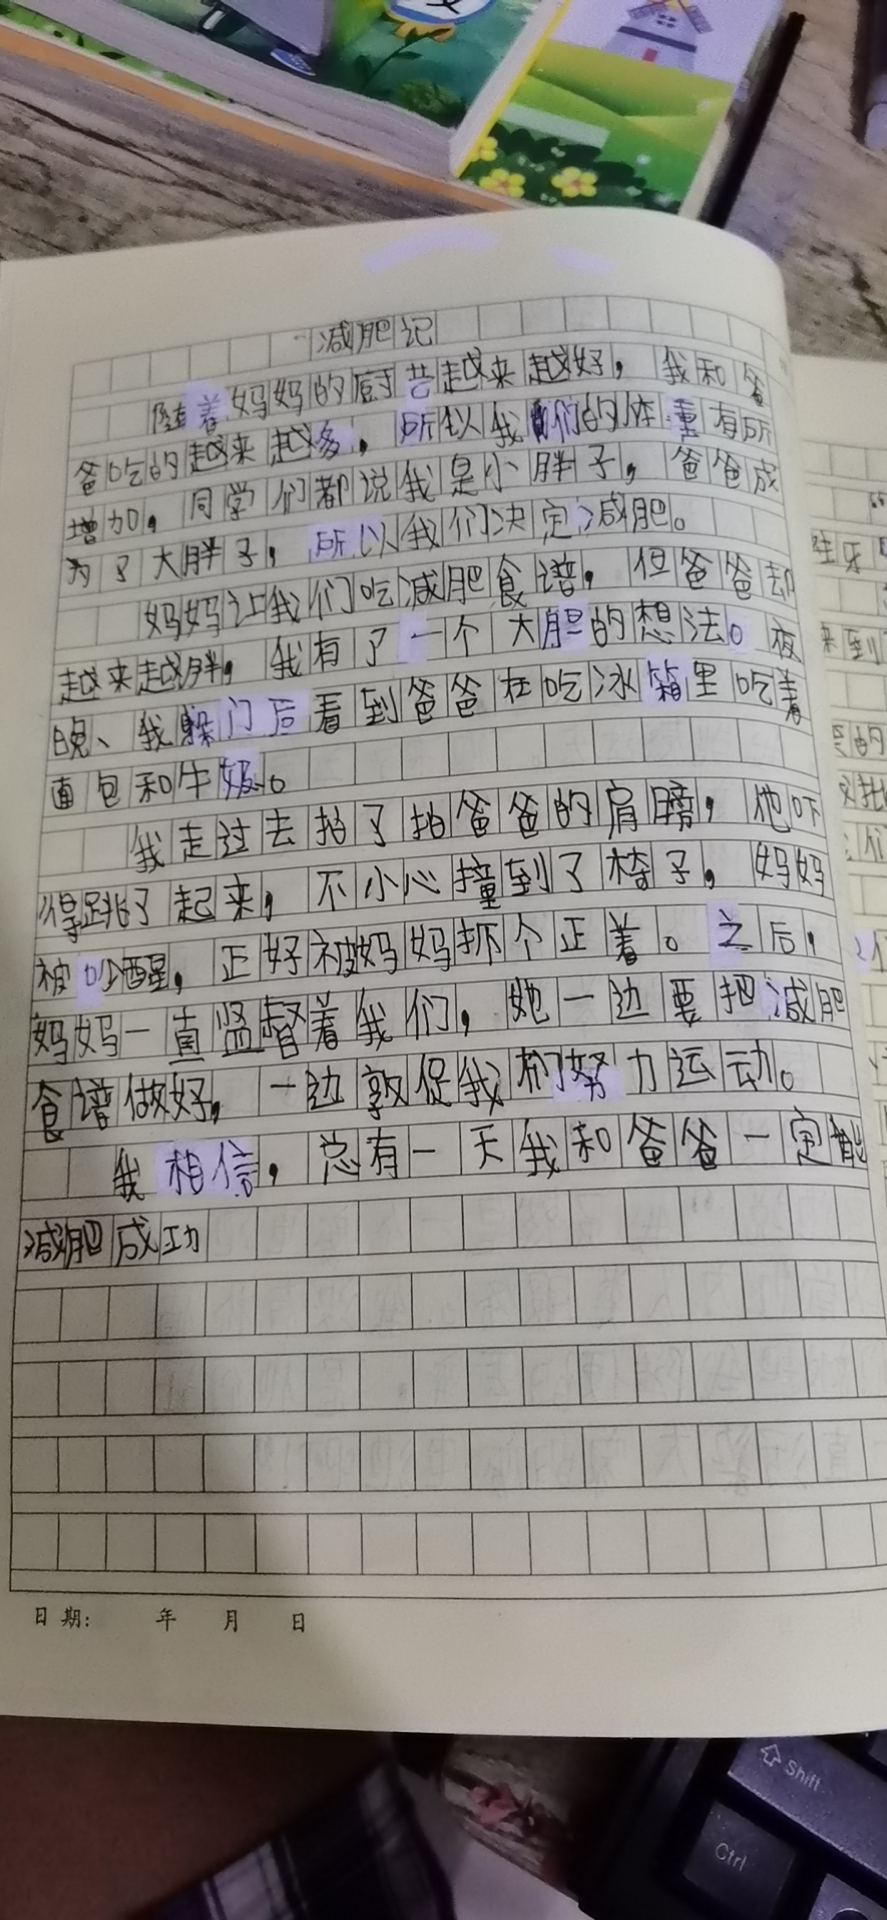 减肥记
随着妈妈的厨艺越来越好，我和爸
爸吃的越来越多，所以我们的体重有所
增加，同学们都说我是小胖子，爸爸成
为了大胖子，所以我们决定减肥。
妈妈让我们吃减肥食谱，但爸爸却
越来越胖，我有了一个大胆的想法。夜
晚、我躲门后看到爸爸在吃冰箱里吃着
面包和牛奶。
我走过去拍了拍爸爸的肩膀，他吓
得跳了起来，不小心撞到了椅子，妈妈
被吵醒，正好被妈妈抓个正着。之后，
妈妈一直监督着我们，她一边要把减肥
食谱做好，一边敦促我们努力运动。
我相信，总有一天我和爸爸一定能
减肥成功
日期： 年 月 日
来到
的
们
Shift
Ctrl